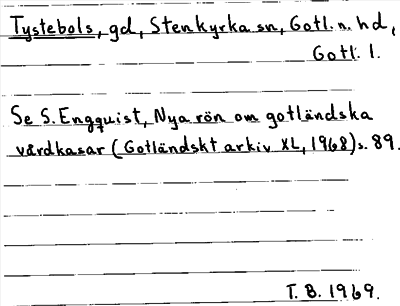 Tystebols, gd, Stenkyrka sn, Gotl. n. hd,
Gotl. l.
Se S. Engquist, Nya rön om gotländska
vårdkasar (Gotländskt arkiv XL, 1968) s. 89.
T. B. 1969.